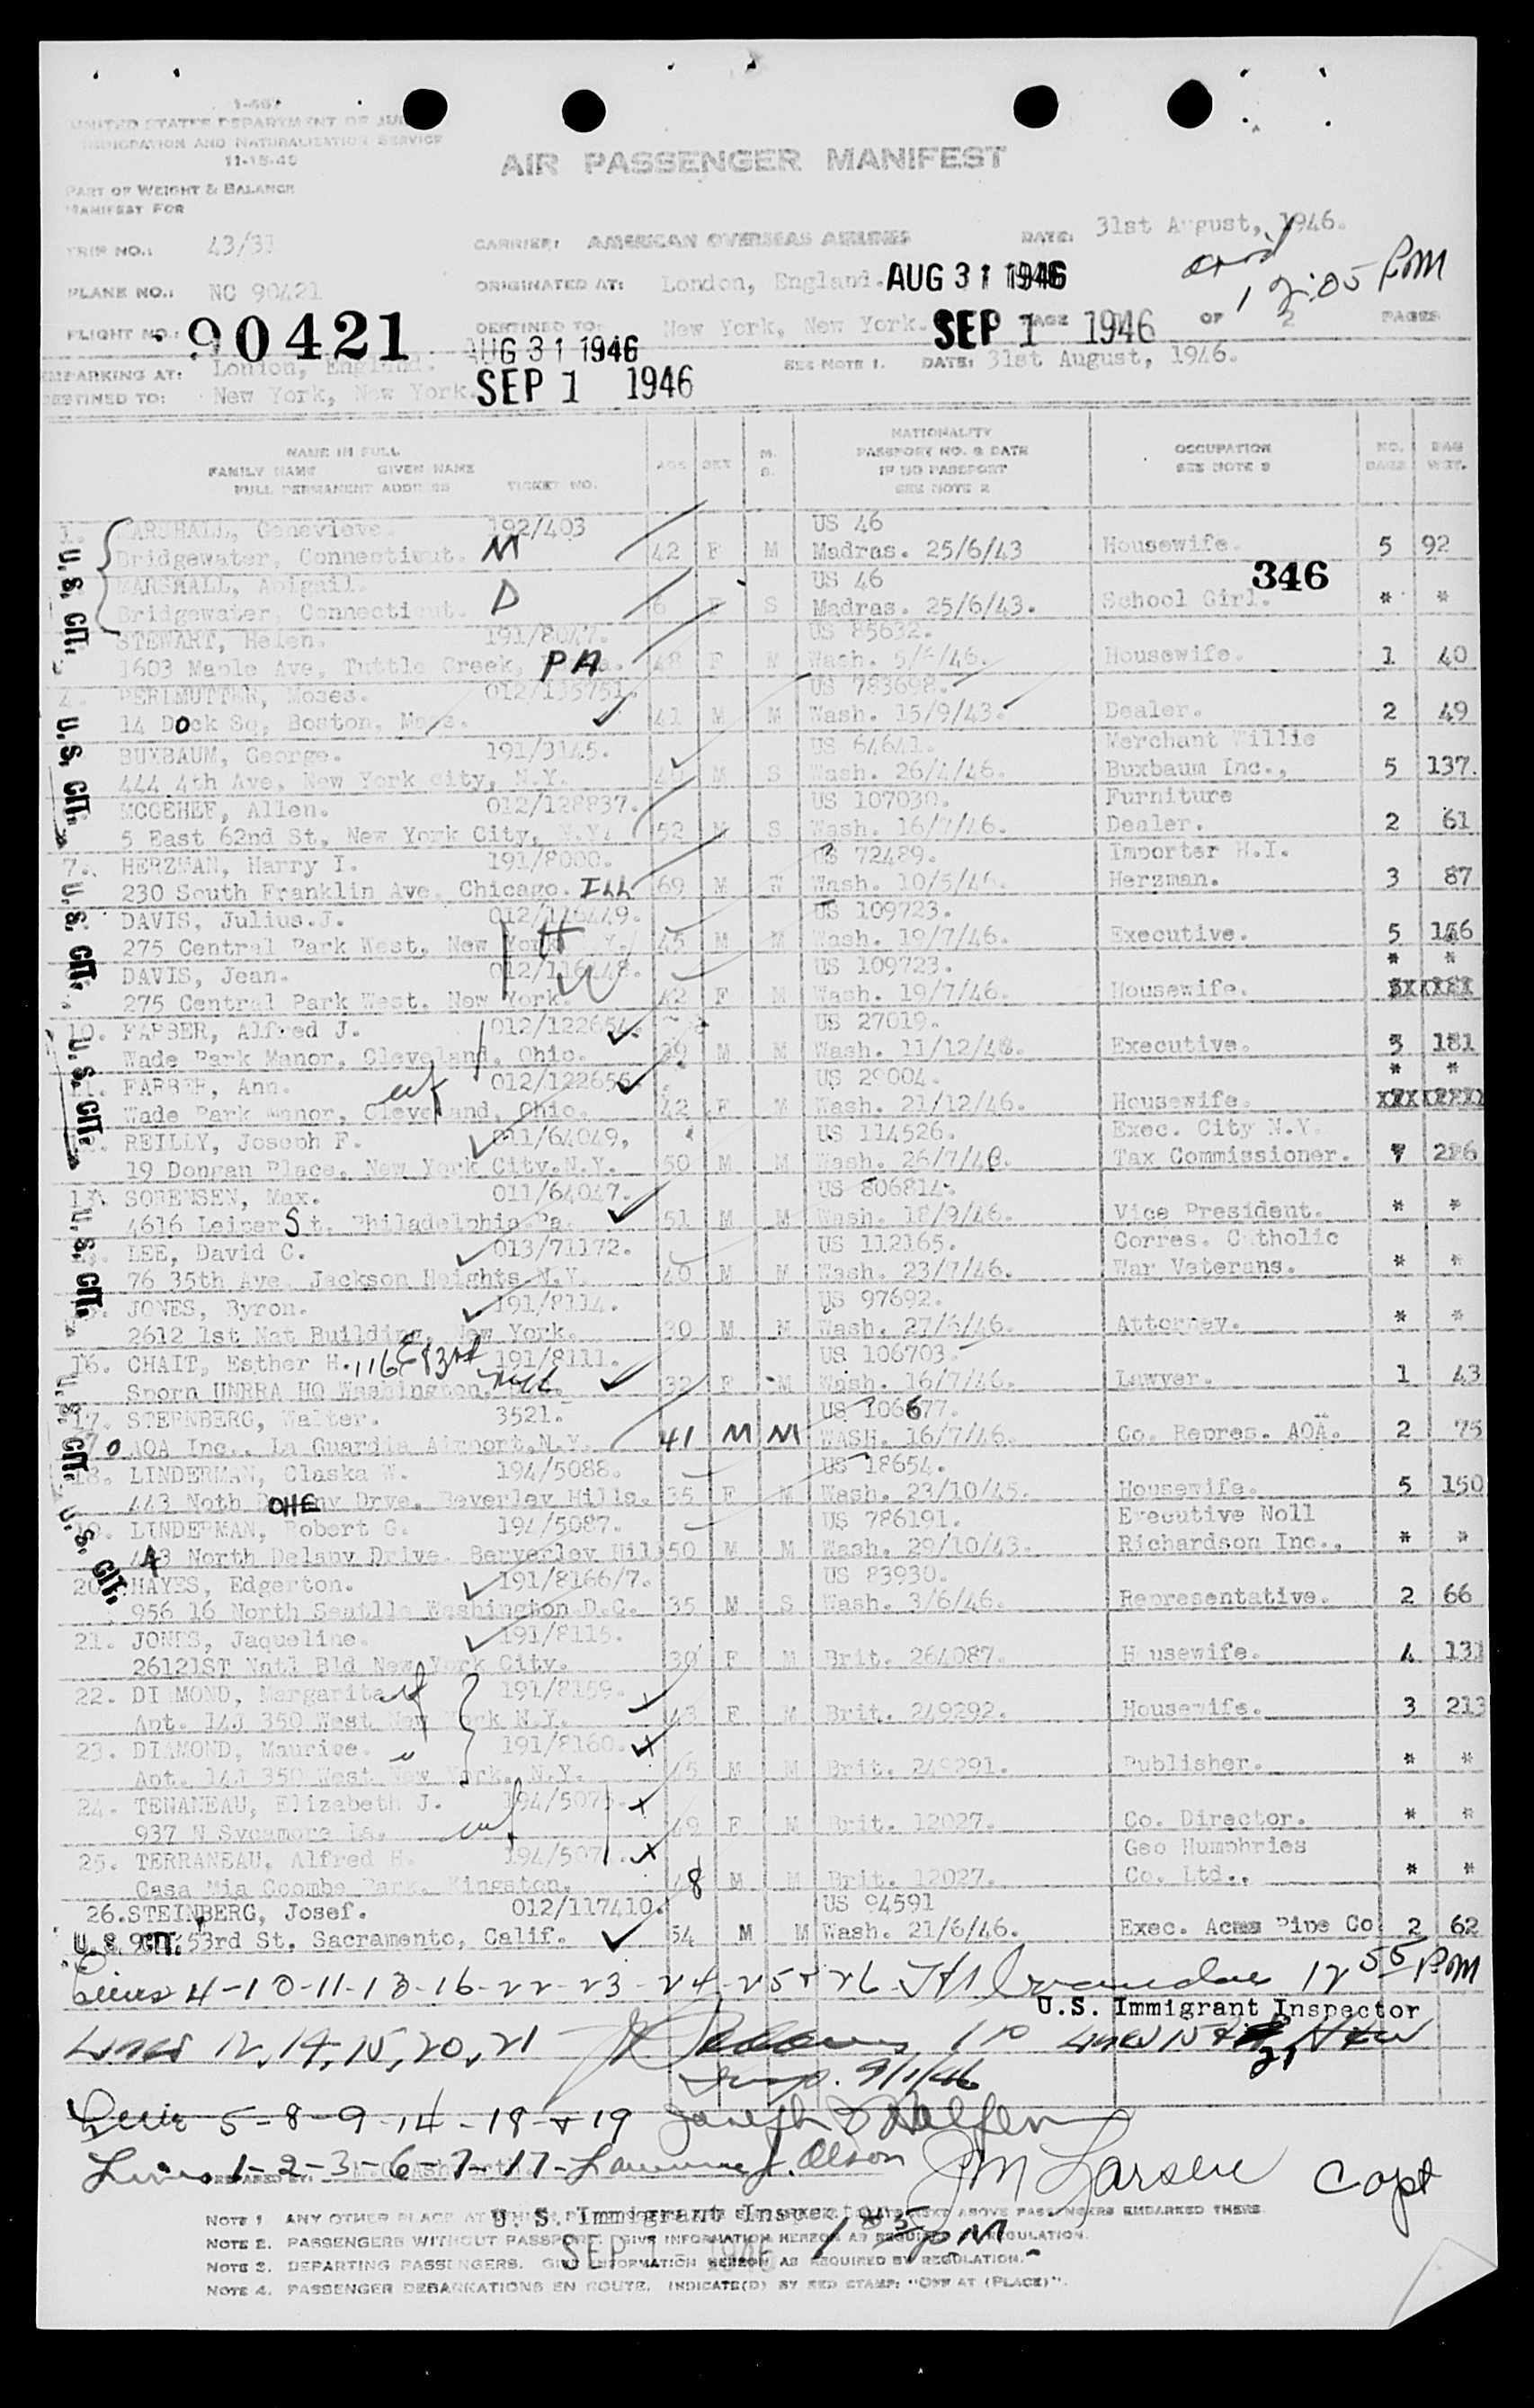 1-467
UNITED STATES DEPARTMENT OF JUS
IMMIGRATION AND NATURALIZATION SERVICE
11-15-45
AIR PASSENGER MANIFEST
PART OF WEIGHT & BALANCE
MANIFEST FOR
TRIP NO.: 43/31 CARRIER: AMERICAN OVERSEAS AIRLINES DATE: 31st August, 1946.
PLANE NO.: NC 90421 ORIGINATED AT: London, England. AUG 31 1946 arr'd 12:05 PM
FLIGHT NO.: 90421 DESTINED TO: New York, New York. SEP 1 1946 PAGE OF 2 PAGES
AUG 31 1946
EMBARKING AT: London, England. SEE NOTE 1. DATE: 31st August, 1946.
DESTINED TO: New York, New York. SEP 1 1946
NAME IN FULL
FAMILY NAME GIVEN NAME
FULL PERMANENT ADDRESS TICKET NO. AGE SEX M. S. NATIONALITY PASSPORT NO. & DATE IF NO PASSPORT SEE NOTE 2 OCCUPATION SEE NOTE 3 NO. BAGS BAG WGT.
1. MARSHALL, Genevieve. 192/403 US 46
Bridgewater, Connecticut. M 42 F M Madras. 25/6/43 Housewife. 5 92
346
MARSHALL, Abigail. US 46
Bridgewater, Connecticut. D 6 F S Madras. 25/6/43. School Girl. * *
STEWART, Helen. 191/8047. US 85632.
1603 Maple Ave, Tuttle Creek, PA 48 F M Wash. 5/6/46. Housewife. 1 40
4. PERLMUTTER, Moses. 012/135751. US 783698.
14 Dock Sq, Boston, Mass. 41 M M Wash. 15/9/43. Dealer. 2 49
BUXBAUM, George. 191/3145. US 64641. Merchant Willie
444 4th Ave, New York City, N.Y. 40 M S Wash. 26/4/46. Buxbaum Inc., 5 137.
MCGEHEE, Allen. 012/128837. US 107030. Furniture
5 East 62nd St, New York City, N.Y. 52 M S Wash. 16/7/46. Dealer. 2 61
7. HERZMAN, Harry I. 191/8000. US 72489. Importer H.I.
230 South Franklin Ave, Chicago. ILL 69 M W Wash. 10/5/46. Herzman. 3 87
DAVIS, Julius.J. 012/116449. US 109723.
275 Central Park West, New York N.Y. H 45 M M Wash. 19/7/46. Executive. 5 156
DAVIS, Jean. 012/116448. US 109723. * *
275 Central Park West, New York. W 42 F M Wash. 19/7/46. Housewife.
10. FARBER, Alfred J. 012/122654. US 27019.
Wade Park Manor, Cleveland, Ohio. 39 M M Wash. 11/12/46. Executive. 5 181
11. FARBER, Ann. 012/122655. US 29004. * *
Wade Park Manor, Cleveland, Ohio. wf 42 F M Wash. 21/12/46. Housewife.
12. REILLY, Joseph F. 011/64049, US 114526. Exec. City N.Y.
19 Dongan Place, New York City.N.Y. 50 M M Wash. 26/7/46. Tax Commissioner. 7 286
13. SORENSEN, Max. 011/64047. US 806814.
4616 Leiper St, Philadelphia Pa. 51 M M Wash. 18/9/46. Vice President. * *
LEE, David C. 013/71172. US 112165. Corres. Catholic
76 35th Ave, Jackson Heights N.Y. 40 M M Wash. 23/7/46. War Veterans. * *
JONES, Byron. 191/8114. US 97692.
2612 1st Nat Building, New York. 30 M M Wash. 27/6/46. Attorney. * *
16. CHAIT, Esther H. 116 E 83rd 191/8111. US 106703.
Sporn UNRRA HQ Washington, NYC 32 F M Wash. 16/7/46. Lawyer. 1 43
17. STERNBERG, Walter. 3521. US 106677.
AOA Inc., La Guardia Airport,N.Y. 41 M M WASH. 16/7/46. Co. Repres. AOA. 2 75
18. LINDERMAN, Claska W. 194/5088. US 18654.
443 Noth DOHENy Drve. Beverley Hills. 35 F M Wash. 23/10/45. Housewife. 5 150
19. LINDERMAN, Robert G. 194/5087. US 786191. Executive Noll
443 North Delany Drive. Berverley Hil 50 M M Wash. 29/10/43. Richardson Inc., * *
20. HAYES, Edgerton. 191/8166/7. US 83930.
956 16 North Seattle Washington D.C. 35 M S Wash. 3/6/46. Representative. 2 66
21. JONES, Jaqueline. 191/8115.
26121ST Natl Bld New York City. 30 F M Brit. 264087. Housewife. 4 131
22. DIAMOND, Margarita. wf 191/8159.
Apt. 14J 350 West New York N.Y. 43 F M Brit. 249292. Housewife. 3 213
23. DIAMOND, Maurice. 191/8160.
Apt. 14J 350 West New York, N.Y. 45 M M Brit. 249291. Publisher. * *
24. TENANEAU, Elizabeth J. 194/5075.
937 N Sycamore La. wf 49 F M Brit. 12027. Co. Director. * *
25. TERRANEAU, Alfred H. 194/507 Geo Humphries
Casa Mia Coombe Park, Kingston. 48 M M Brit. 12027. Co. Ltd., * *
26.STEINBERG, Josef. 012/117410. US 94591
53rd St, Sacramento, Calif. 54 M M Wash. 21/6/46. Exec. Acme Pipe Co. 2 62
U.S. CIT.
U.S. CIT.
U.S. CIT.
U.S. CIT.
U.S. CIT.
U.S. CIT.
U.S. CIT.
U.S. CIT.
Lines 4-10-11-13-16-22-23-24-25 & 26 12 55 PM
U.S. Immigrant Inspector
Lines 12, 14, 15, 20, 21
Insp. 9/1/46
Lines 5-8-9-14-18-&19 Joseph Halfern
Lines 1-2-3-6-7-17- Lawrence J. Olson JM Larsen Capt
PREPARED BY:
U. S. Immigrant Inspector
SEP 1 1946
NOTE 1 ANY OTHER PLACE AT WHICH ABOVE PASSENGERS EMBARKED THERE.
NOTE 2. PASSENGERS WITHOUT PASSPORT. GIVE INFORMATION HEREON AS REQUIRED BY REGULATION.
NOTE 3. DEPARTING PASSENGERS. GIVE INFORMATION HEREON AS REQUIRED BY REGULATION.
NOTE 4. PASSENGER DEBARKATIONS EN ROUTE. INDICATE(D) BY RED STAMP: "OFF AT (PLACE)".